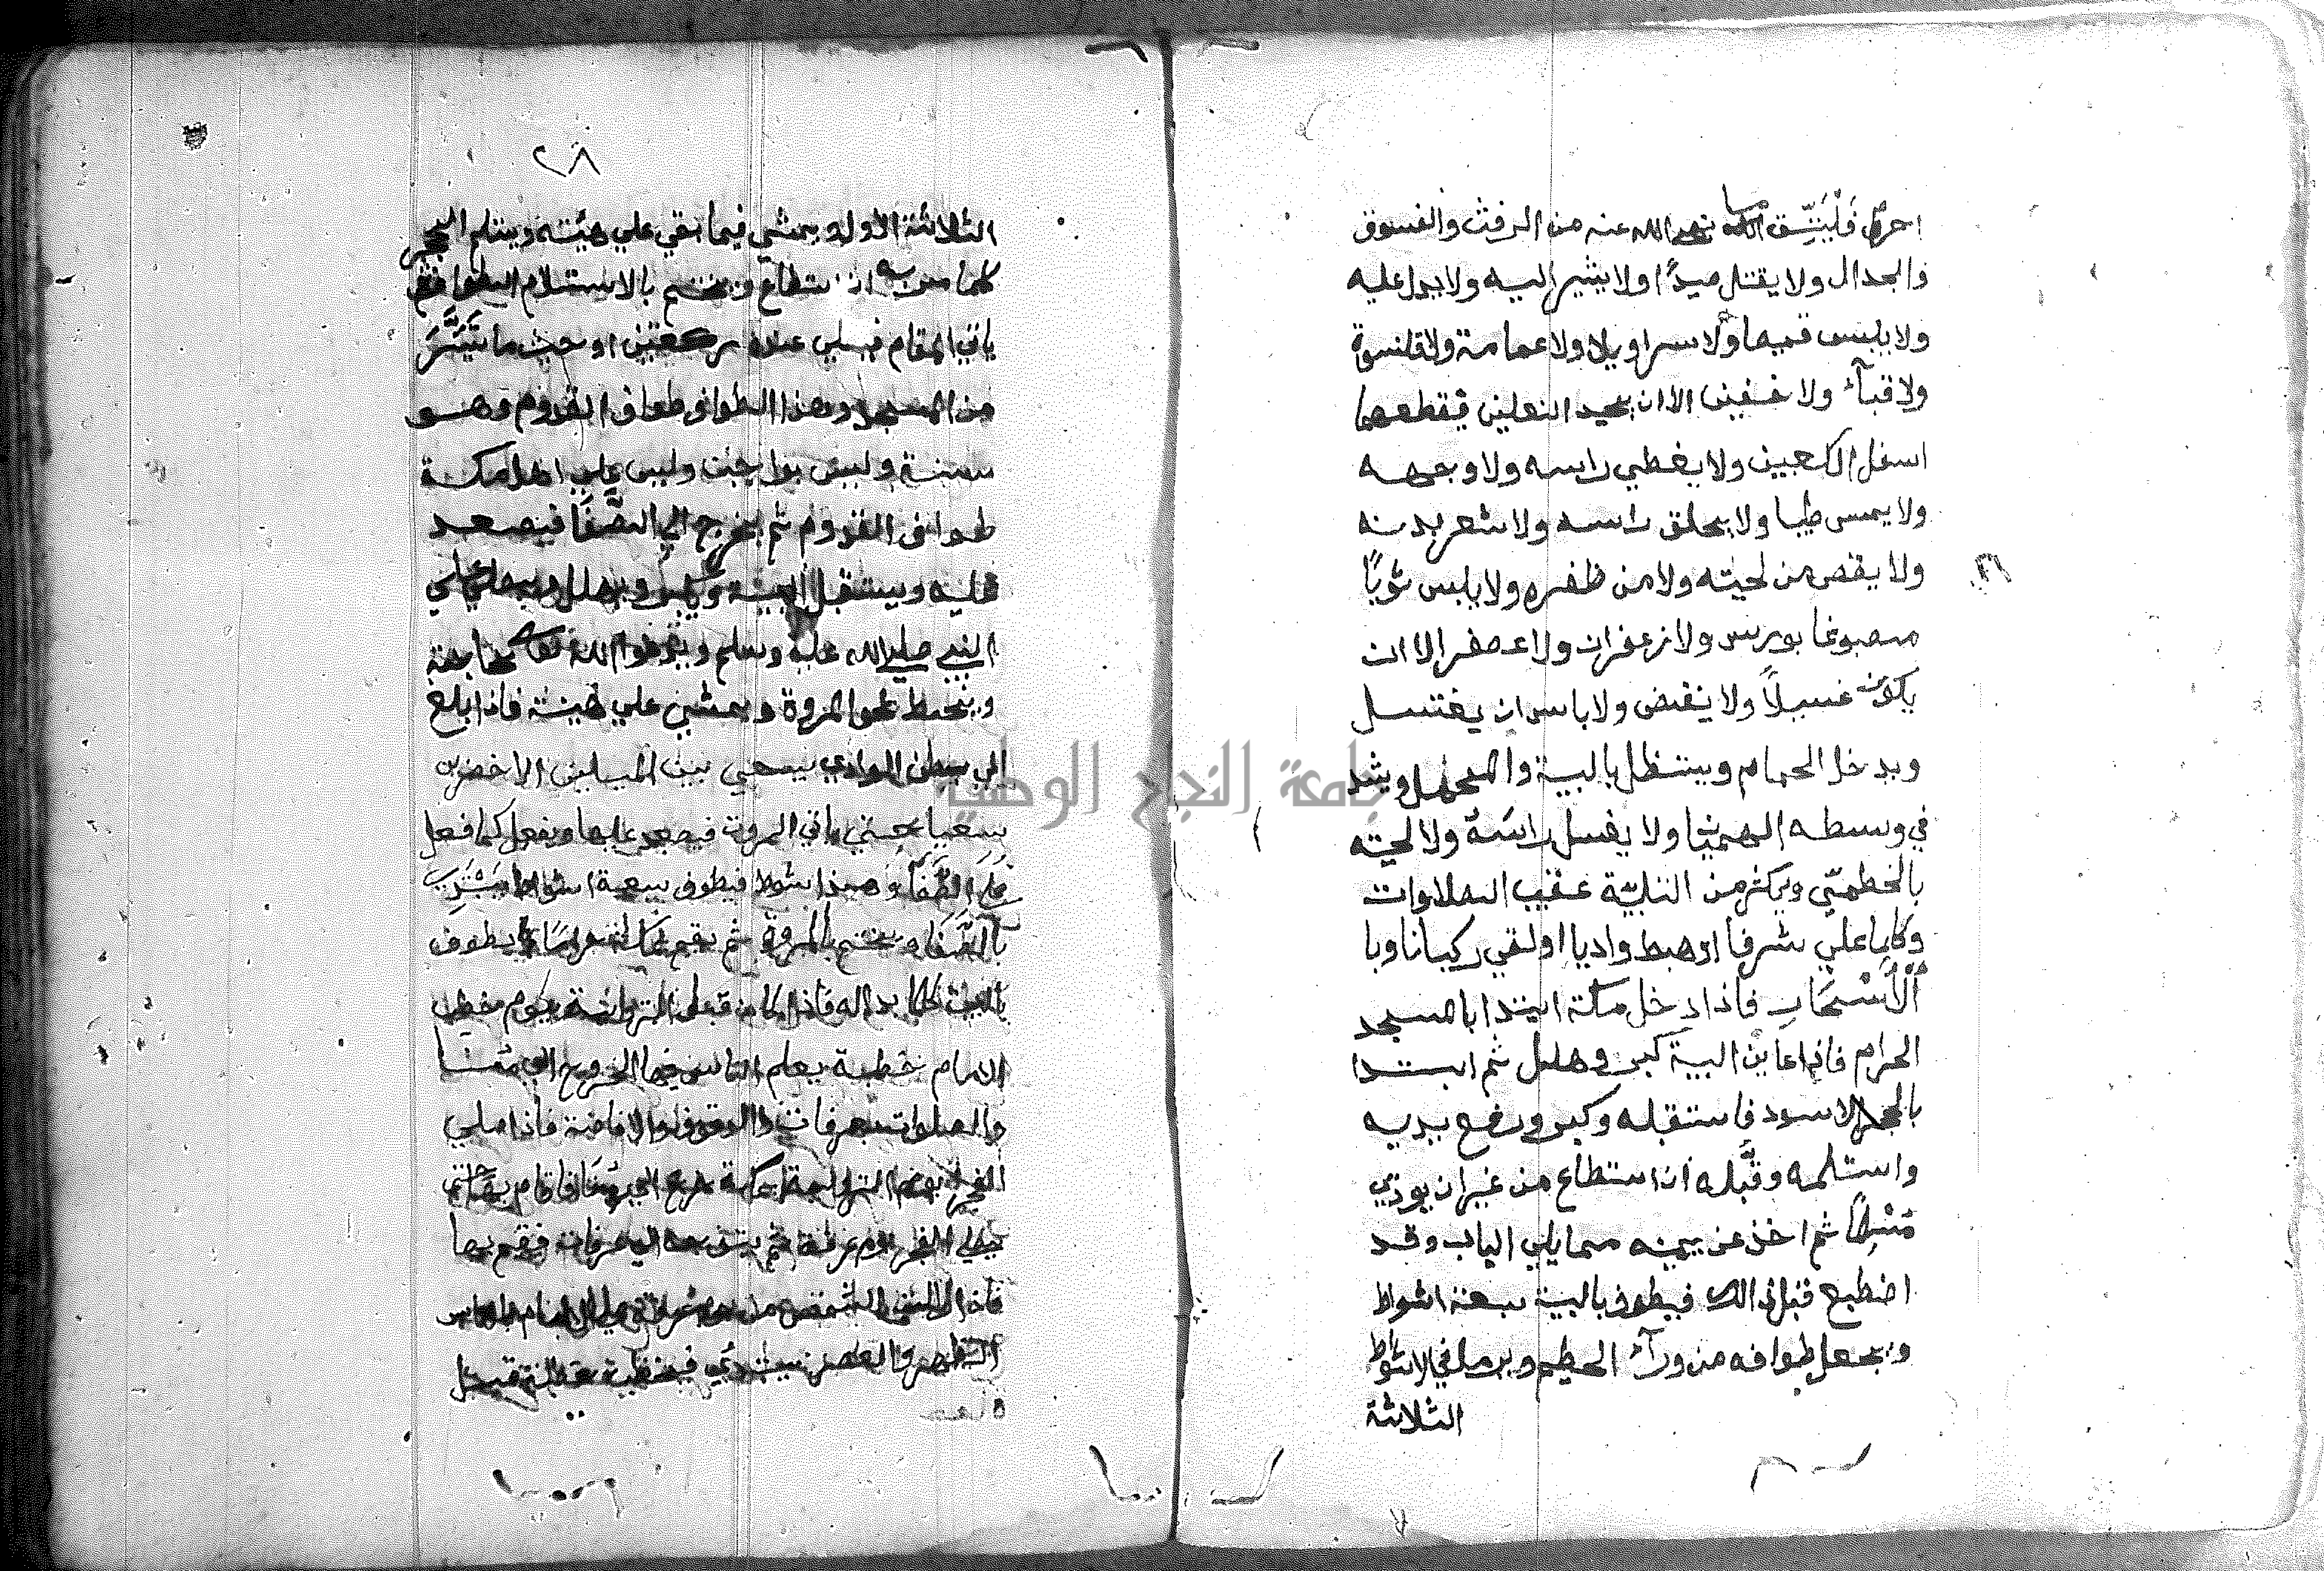 احرم فَلْيَتَّق ما نهى الله عنه من الرفث والفسوق
والجدال ولا يقتل صيدًا ولا يشير اليه ولا يدل عليه
ولا يلبس قميصا ولا سراويلا ولا عمامة ولا قلنسوة
ولا قبآء ولا خفين الا ان يجد النعلين فيقطعهما
اسفل الكعبين ولا يغطي راسه ولا وجهه
ولا يمس طيبا ولا يحلق راسه ولا شعر بدنه
ولا يقص من لحيته ولا من ظفره ولا يلبس ثوبًا
مصبوغا بورس ولا زعفران ولا عصفر الا ان
يكون غسيلاً ولا ينفض ولا باس ان يغتسل
ويدخل الحمام ويستظل بالبية والمحمل ويشد
في وسطه الهميان ولا يغسل راسَهُ ولا لحيته
بالخطميّ ويكثر من التلبيّة عقيب الصلاوات
وكلما علي شرفا او هبط واديا او لقي ركبانا وبا
الْأَسْحَارِ فاذا دخل مكة ابتدا بالمسجد
الحرام فاذا عاين البية كبر وهلل ثم ابتدا
بالحجر الاسود فاستقبله وكبر ورفع يديه
واستلمه وقبَّله ان استطاع من غير ان يوذي
مُسْلِمًا ثم اخذ عن يمينه مما يلي الباب وقد
اضطبع قبل ذالك فيطوف بالبية سبعة اشواط
ويجعل طوافه من ورآء الحطيم ويرمل في الاشواط
الثلاثة
٢٨
الثلاثة الاول ويمشي فيما بقي علي هيئته ويستلم الحجر
كلما مر به ان استطاع ويختم بالاستلام الطواف ثم
ياتي المقام فيصلي عنده ركعتين او حيث ما تَيَسَّرَ
من المسجد وهذا الطواف طواف القدوم وهو
سنة وليس بواجب وليس علي اهل مكة
طواف القدوم ثم يخرج الي الصَّفَا فيصعد
عليه ويستقبل البية ويكبر ويهلل ويصلي علي
النبي صلي الله عليه وسلم ويدعوا الله تعالى بحاجته
وينحط نحو المروة ويمشي علي هينته فاذا بلغ
الي بطن الوادي سعي بين الميلين الاخضرين
سعيا حتي ياتي المروة فيصعد عليها ويفعل كما فعل
علَي الصَّفَا وهذا شوط فيطوف سبعة اشواط يَبْتَدِي
بالصَّفَا ويختم بالمروة ثم يقيم بمكة حراما يطوف
بالبيت كلما بدا له فاذا كان قبل التروية بيوم خطب
الامام خطبة يعلم الناس فيها الخروج الي منا
والصلوات بعرفات والوقوف والافاضة فاذا صلي
الفجر يوم التروية بمكة خرج الي منا فاقام بها حتي
يصلي الفجر يوم عرفة ثم يتوجه الي عرفات فيقيم بها
فاذا زالت الشمس من يوم عرفة صلي الامام بالناس
الظهر والعصر يبتدي فيخطب خطبة قبل